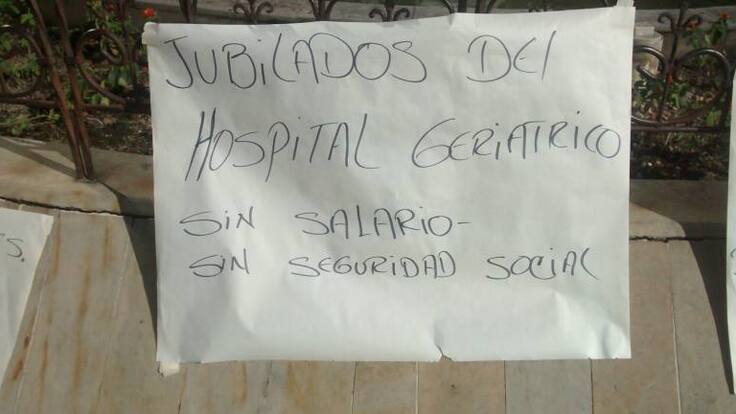 JUBILADOS DEL
HOSPITAL GERIATRICO
SIN SALARIO-
SIN SEGURIDAD SOCIAL